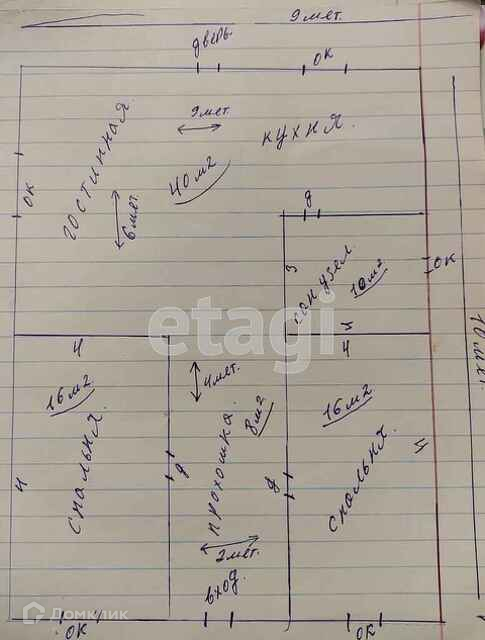 9 мет.
дверь
ОК
9 мет.
кухня.
гостинная
40 м2
6 мет.
ОК
д
3
сан узел.
10 м2
ОК
10 мет.
etagi
4
5
4
4 мет.
16 м2
спальня.
4
д
прохошка.
8 м2
16 м2
спальня.
4
д
2 мет.
вход.
ОК
ОК
Домклик